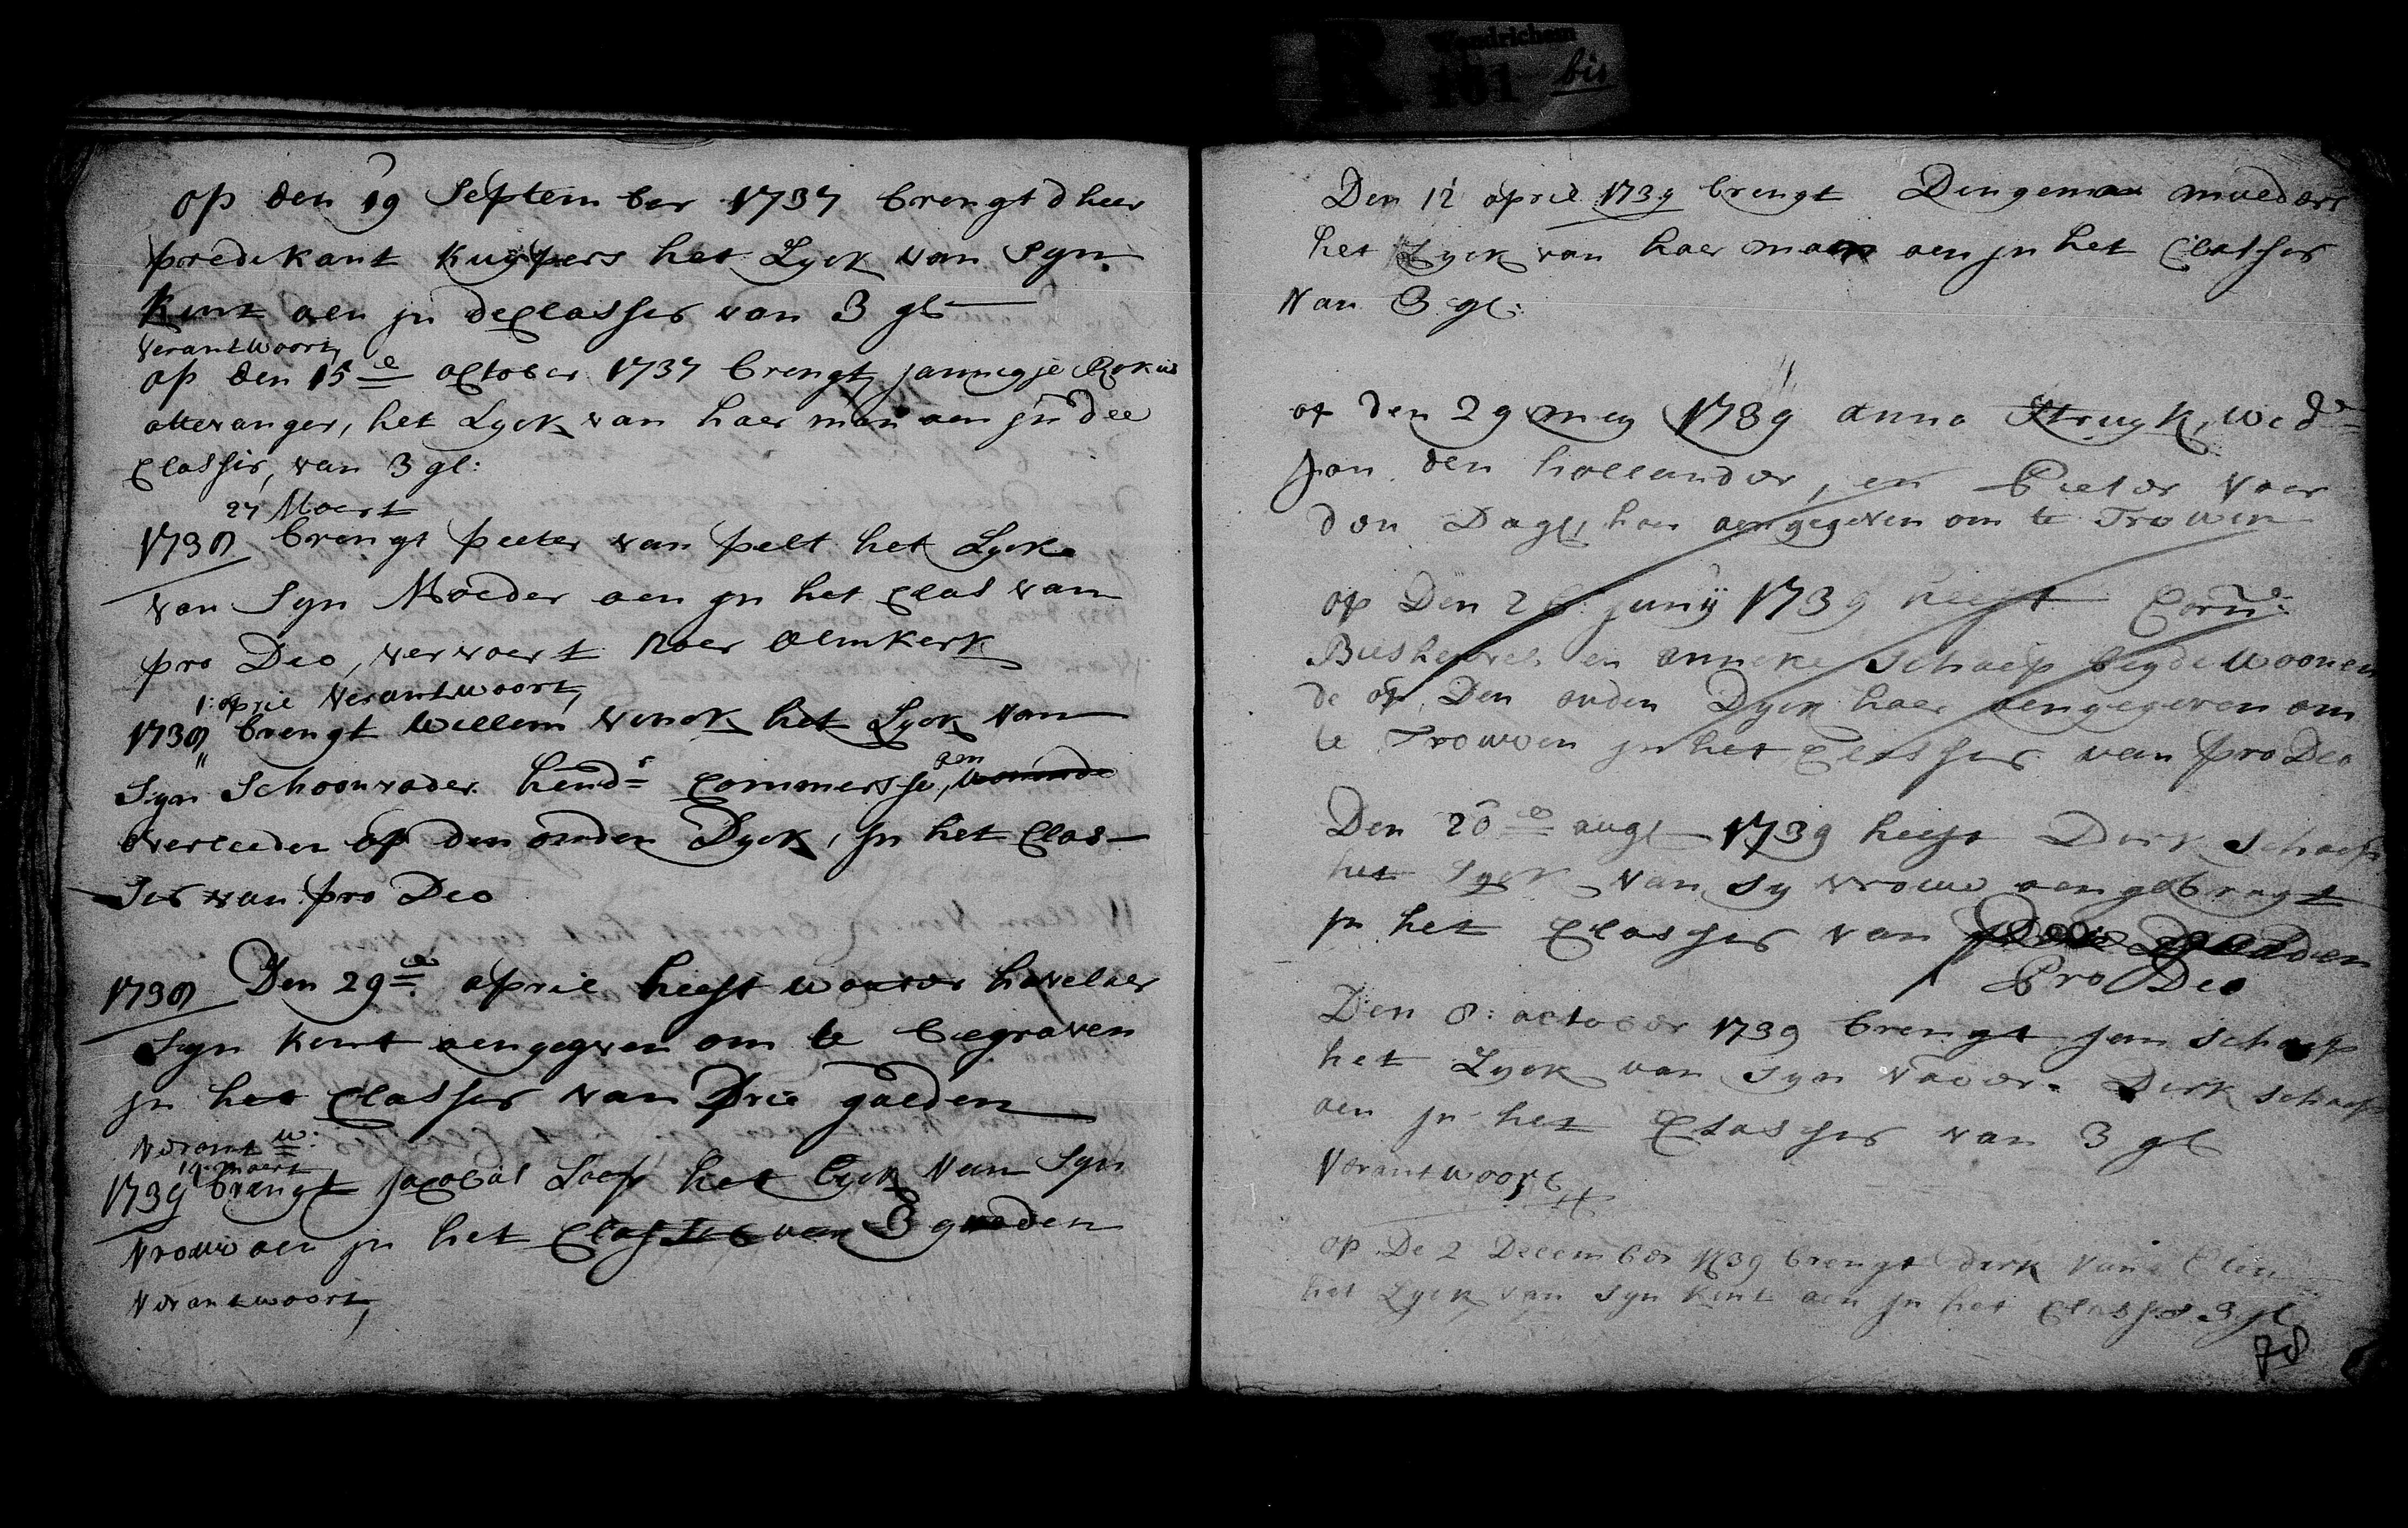 R Woudrichem
101 bis
op den 19 September 1737 brengt d heer
predikant Kuypers het Lyck van Syn
Kint aen jn de Classis van 3 gl
verantwoort
op den 15e october 1737 brengt jannigje Rokus
attevanger, het Lyck van haer man aen jn dee
Classis, van 3 gl:
27 Maert
1738 brengt peeter van pelt het Lyck
van Syn Moeder aen jn het Clas van
pro Deo, vervoert naer almkerk
1: april verantwoort,
1738 brengt Willem vinck het Lyck van
Syn Schoonvader hendr Commersse, aen woonende
overleeden op den ouden Dyck, jn het Clas-
sis van pro Deo
1738 Den 29e april heeft wouter havelaer
Syn Kint aengegeven om te begraven
jn het Classis van Drie gulden
verantw:
14 maert
1739 brengt jacobus Loef het Lyck van Syn
vrouw aen jn het Classis van 3 gulden
verantwoort,
Den 12 april 1739 brengt Dingeman mueders
het Lyck van haer man aen jn het Classis
van 3 gl:
op den 29 mey 1739 anna Struyk, wede
Jan den hollander, en Pieter voer
den Dagh, haer aengegeven om te Trouwen
op Den 26: junij 1739 heeft Corns
Biesheuvel en anneke Schaep beyde woonen
de op Den ouden Dyck haer aengegeven om
te Trouwen jn het Classis van pro Deo
Den 20e augt 1739 heeft Dirk Schaep
het Lyck van Sy vrouw aengebragt
jn het Classis van
Pro Deo
Den 8: october 1739 brengt jan Schaep
het Lyck van Syn vader Dirk Schaep
aen jn het Classis van 3 gl
verantwoort
op De 2 December 1739 brengt dirk van
het Lyck van Syn Kint aen jn het Classis 3 gl
78